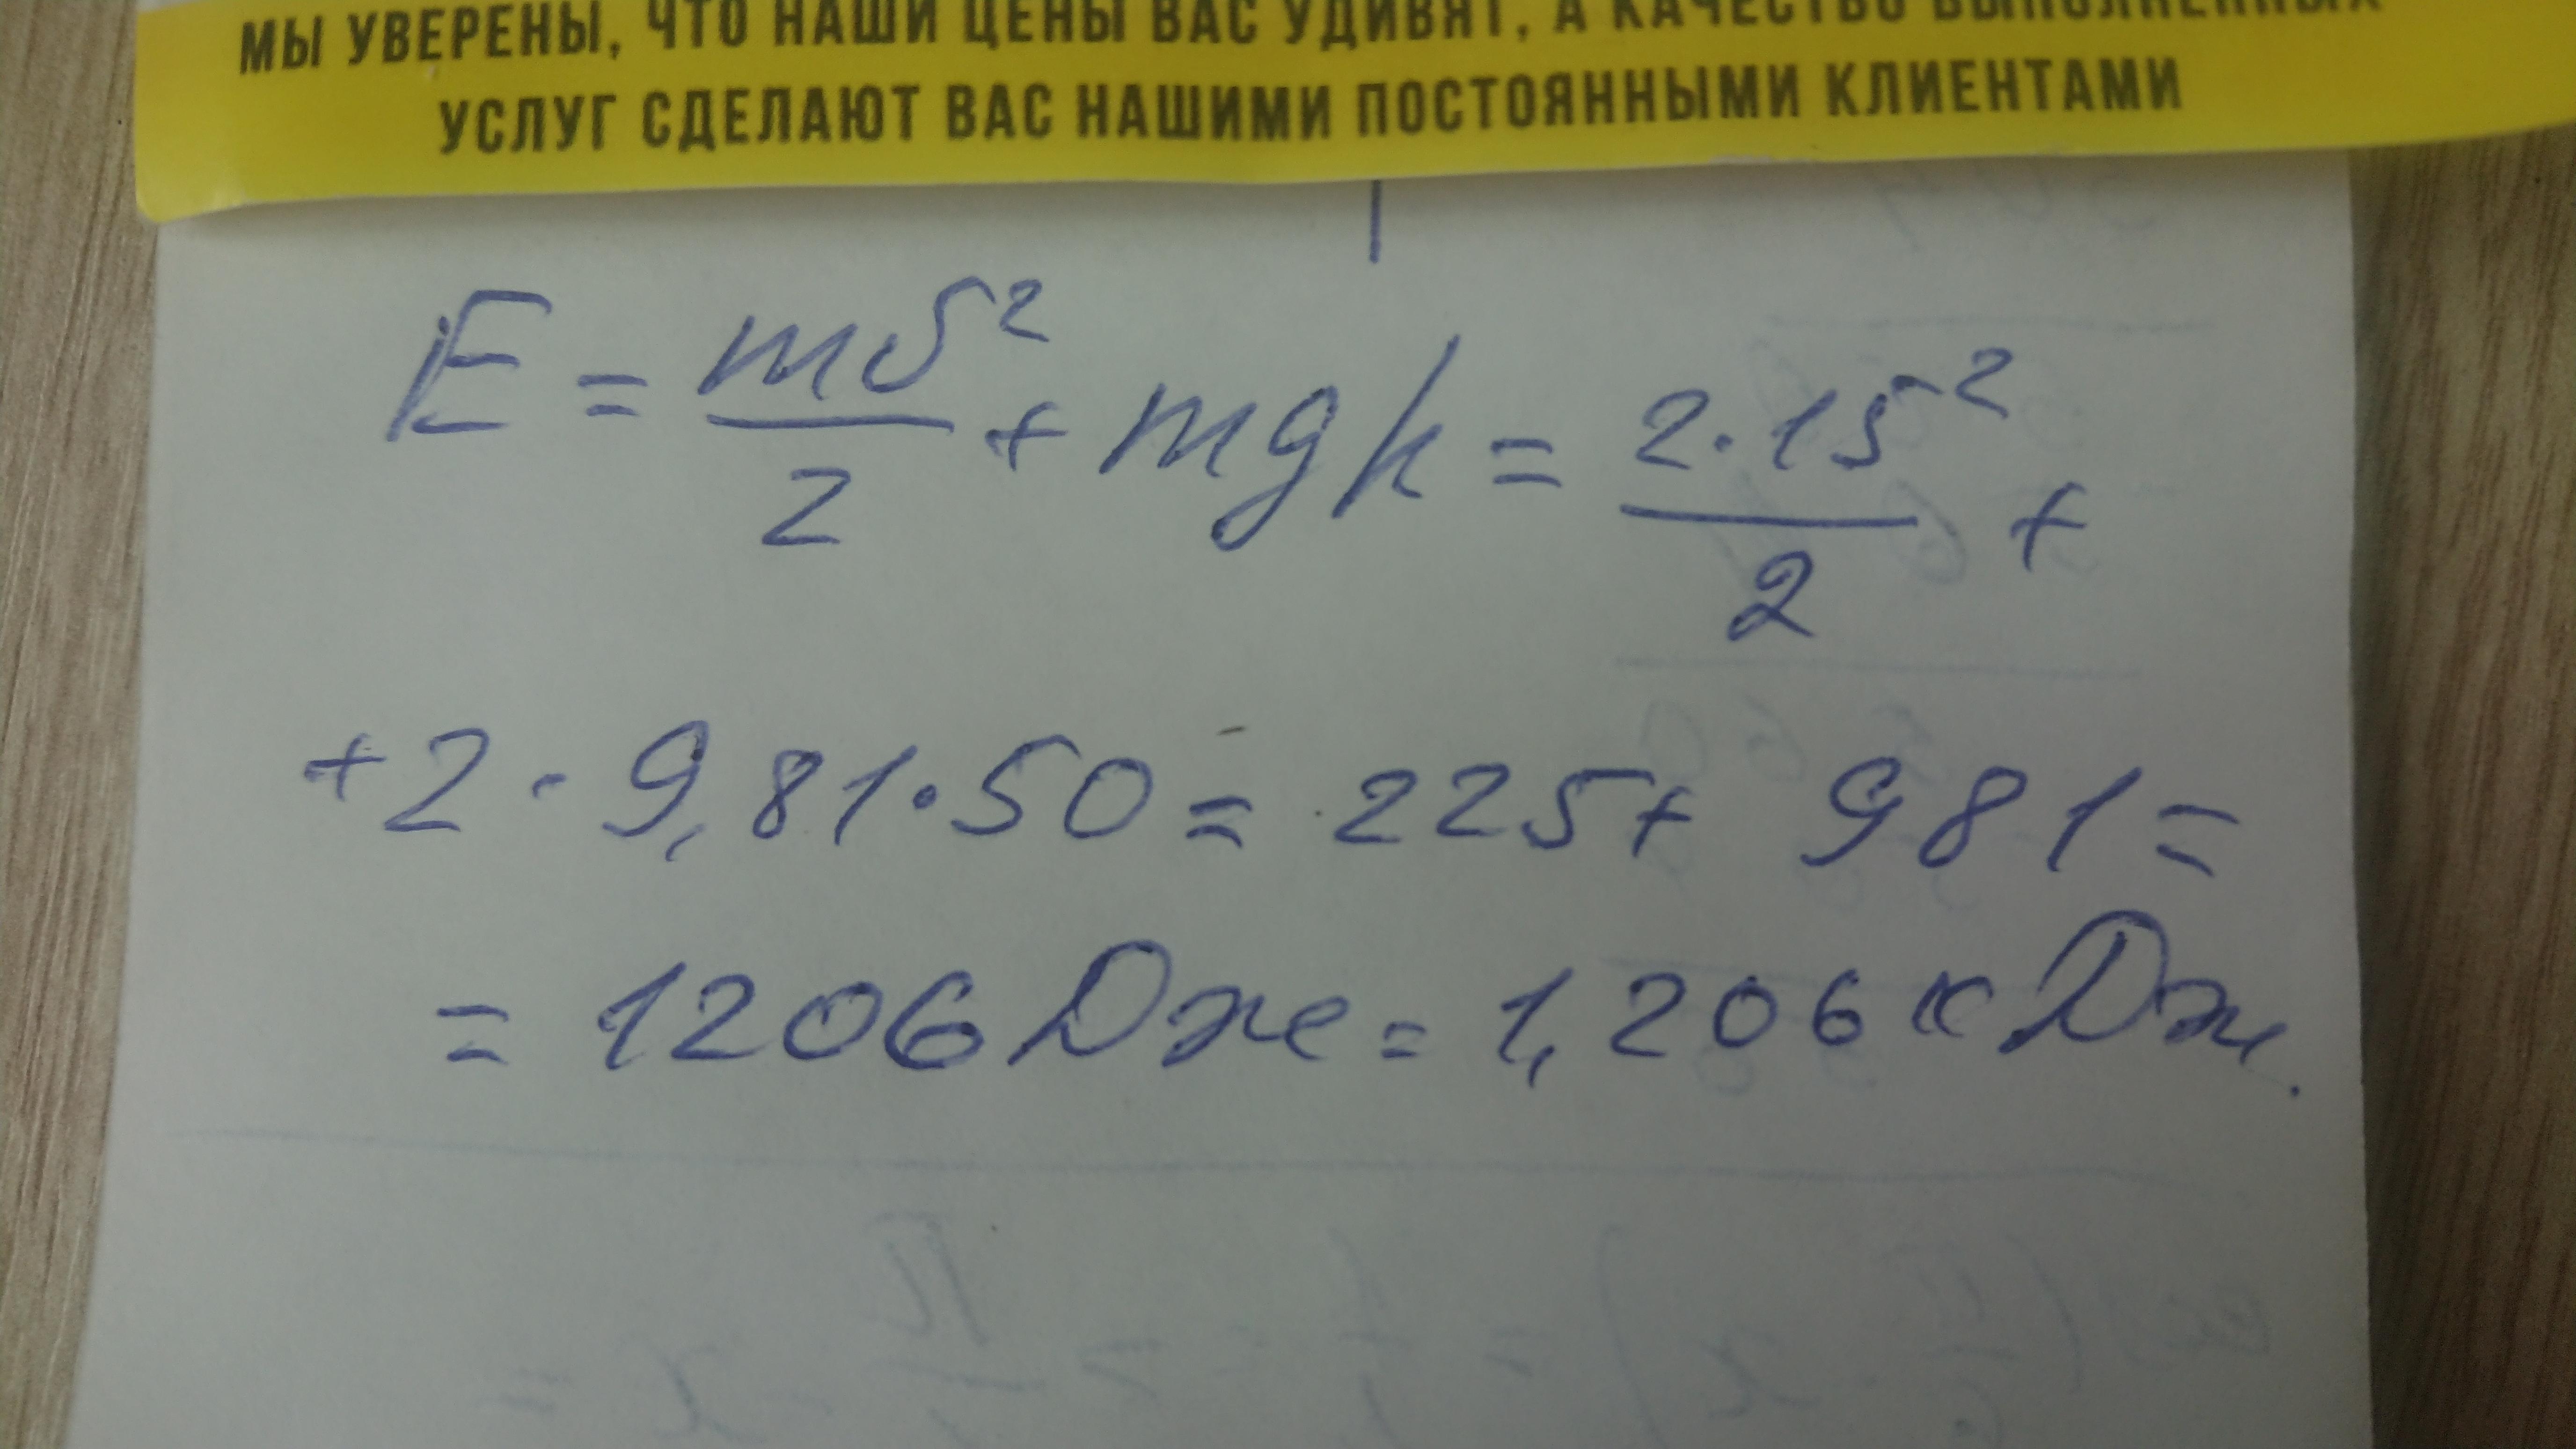 МЫ УВЕРЕНЫ, ЧТО НАШИ ЦЕНЫ ВАС УДИВЯТ, А КАЧЕСТВО ВЫПОЛНЕННЫХ
УСЛУГ СДЕЛАЮТ ВАС НАШИМИ ПОСТОЯННЫМИ КЛИЕНТАМИ
E = mυ²/2 + mgh = 2·15²/2 +
+2·9,81·50 = 225+ 981 =
= 1206 Дж = 1,206 кДж.